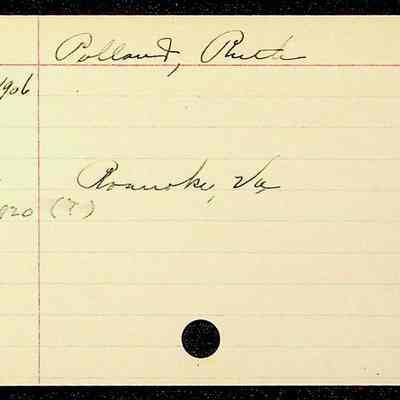 Pollard, Ruth
1906
Roanoke, Va.
020 (T)